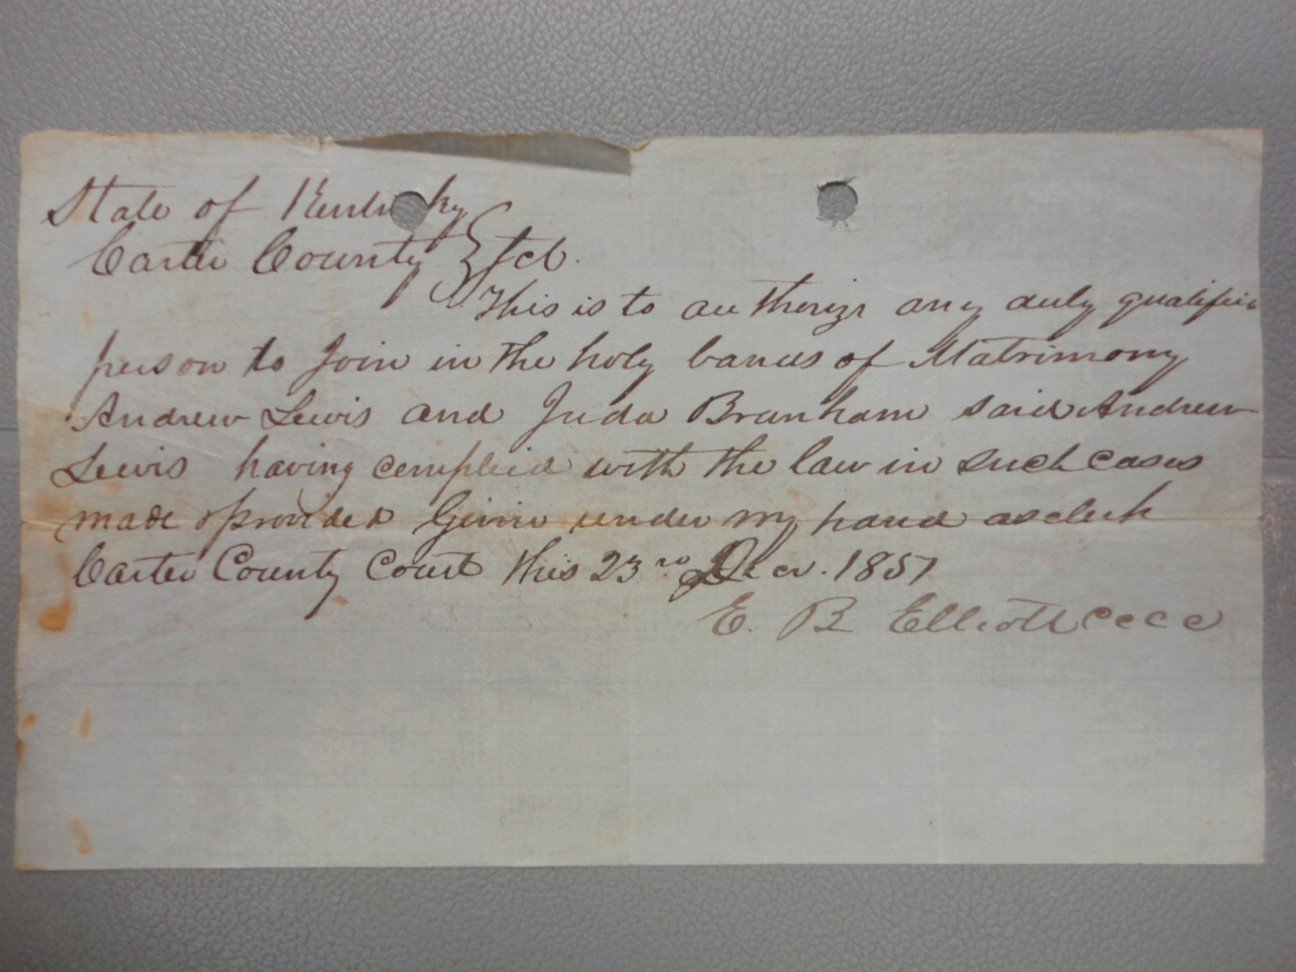 State of Kentucky
Carter County } Sct.
This is to authorize any duly qualified
person to Join in the holy bands of Matrimony
Andrew Lewis and Juda Branham said Andrew
Lewis having complied with the law in such cases
made & provided Given under my hand as clerk
Carter County Court this 23rd Decr. 1857
E. B Elliott cccc